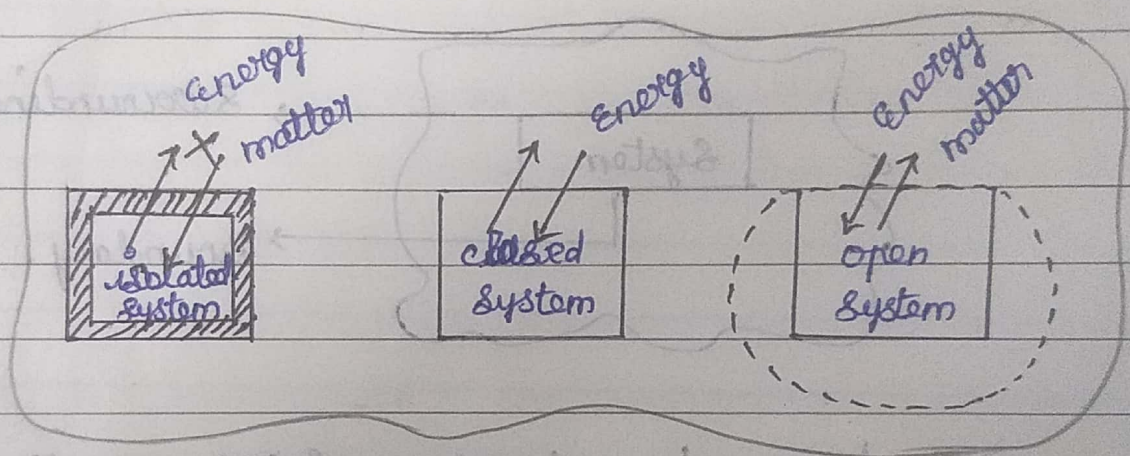 energy
matter
isolated
system
Energy
closed
system
energy
matter
open
system